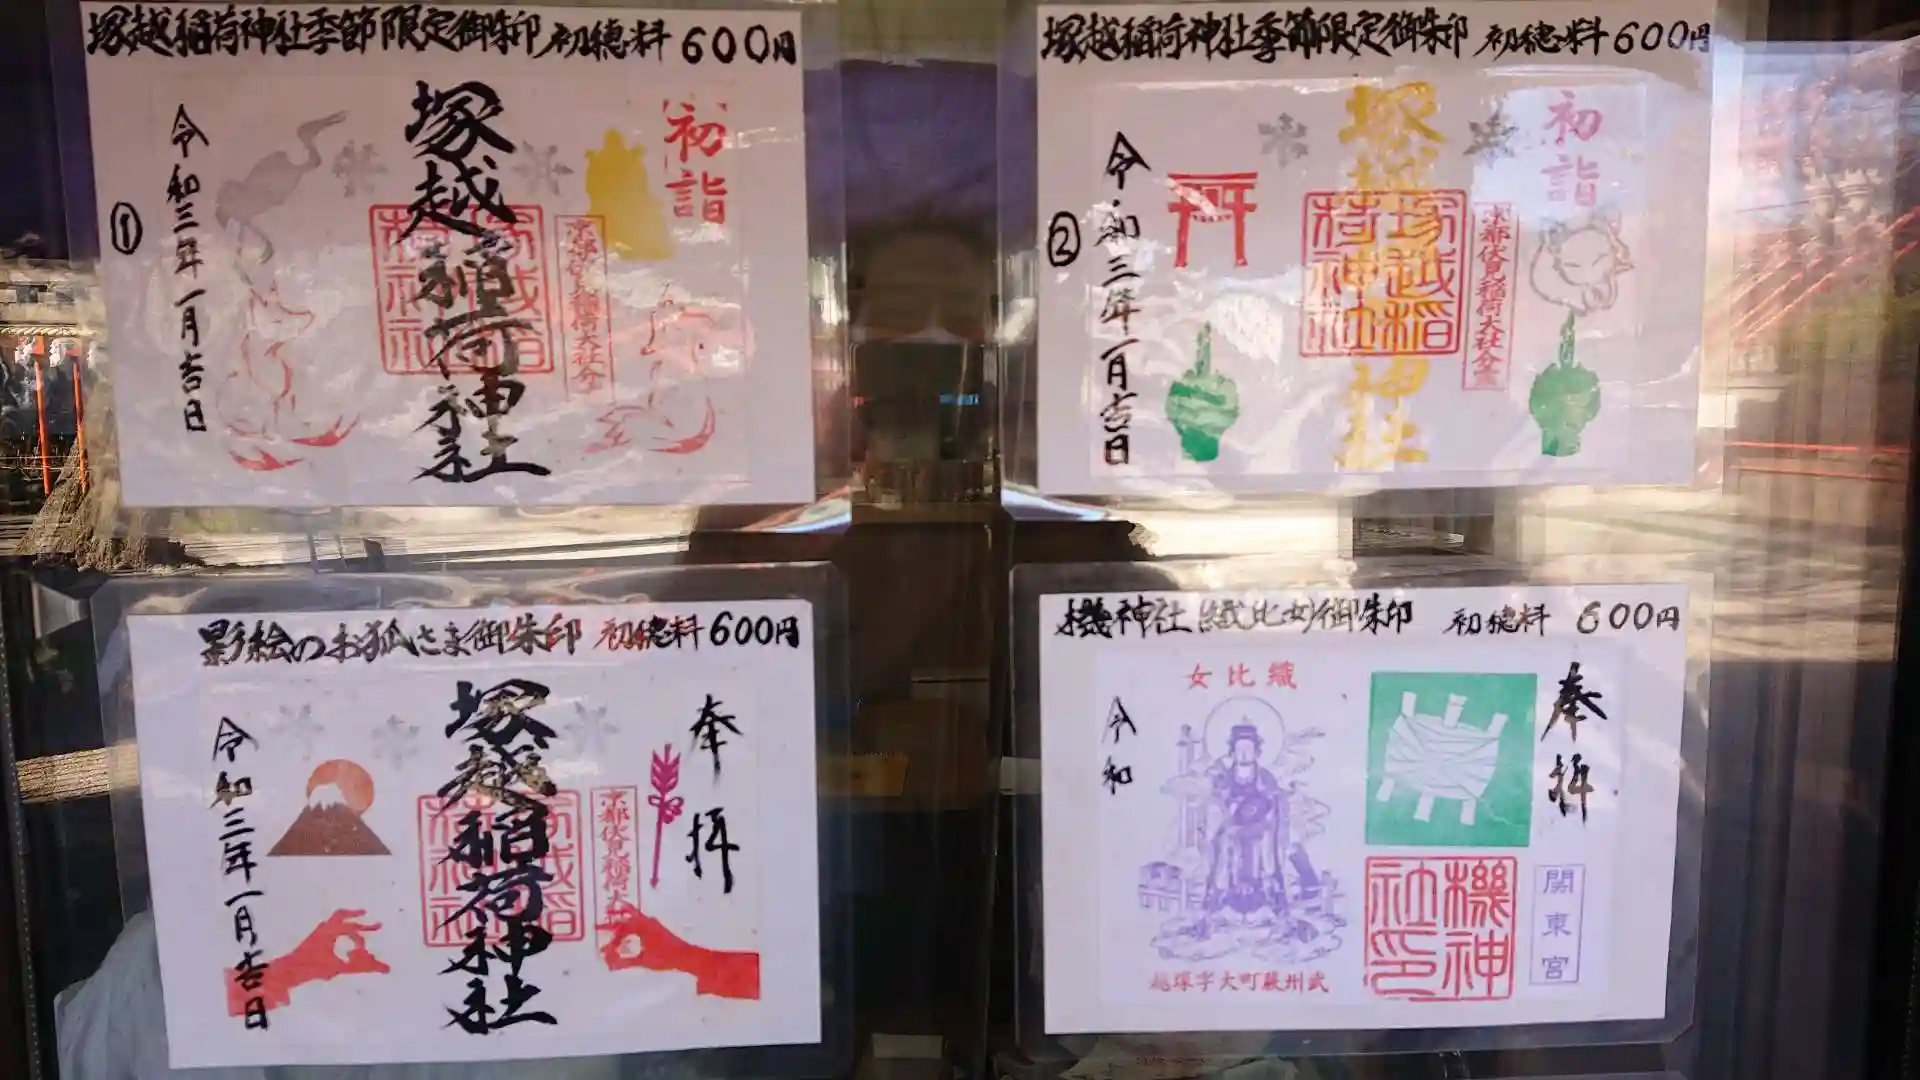 塚越稲荷神社季節限定御朱印 初穂料 600円
①
初詣
塚越稲荷神社
京都伏見稲荷大社分
令和三年一月吉日
塚越稲荷神社季節限定御朱印 初穂料 600円
②
初詣
塚越稲荷神社
塚越稲荷神社
京都伏見稲荷大社分霊
令和三年一月吉日
影絵のお狐さま御朱印 初穂料 600円
奉拝
塚越稲荷神社
京都伏見稲荷大
令和三年一月吉日
機神社(織比女)御朱印 初穂料 600円
奉拝
女比織
令和
機神社印
関東宮
越塚字大町蕨州武